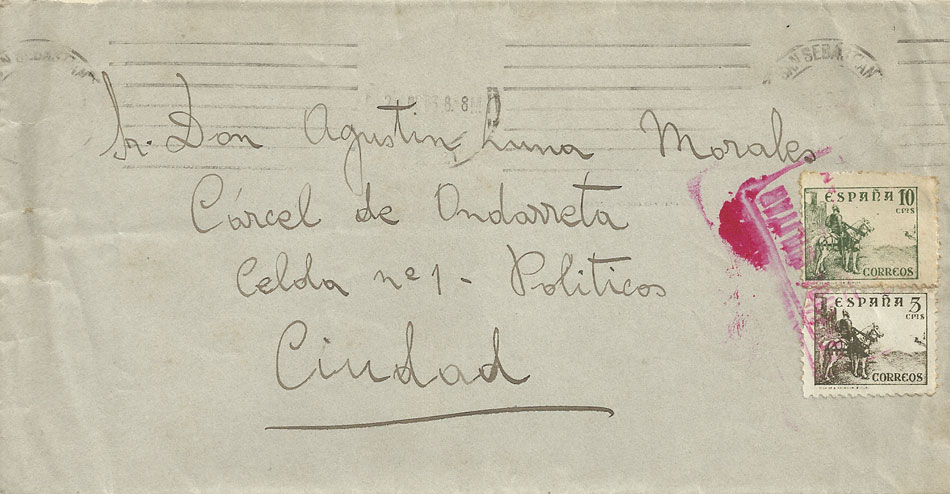 SAN SEBASTIAN
Sr. Don Agustin Luna Morales
Cárcel de Ondarreta
Celda nº 1 - Politicos
Ciudad
ESPAÑA 10
CTS
CORREOS
ESPAÑA 5
CTS
CORREOS